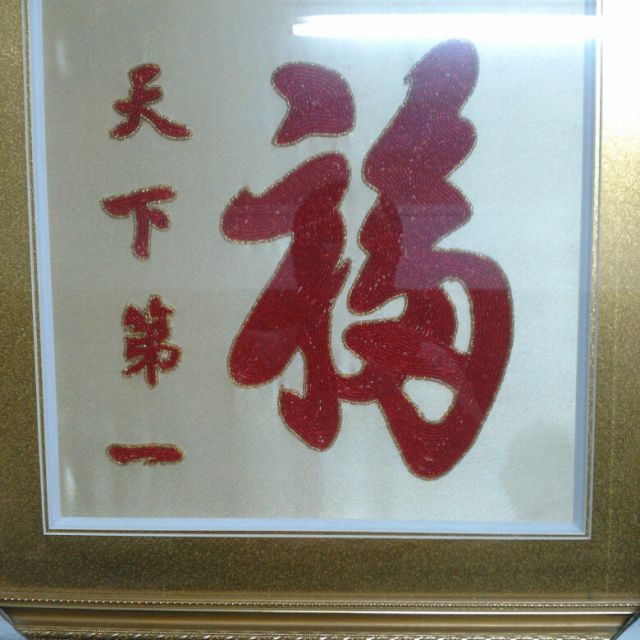 天下第一
福